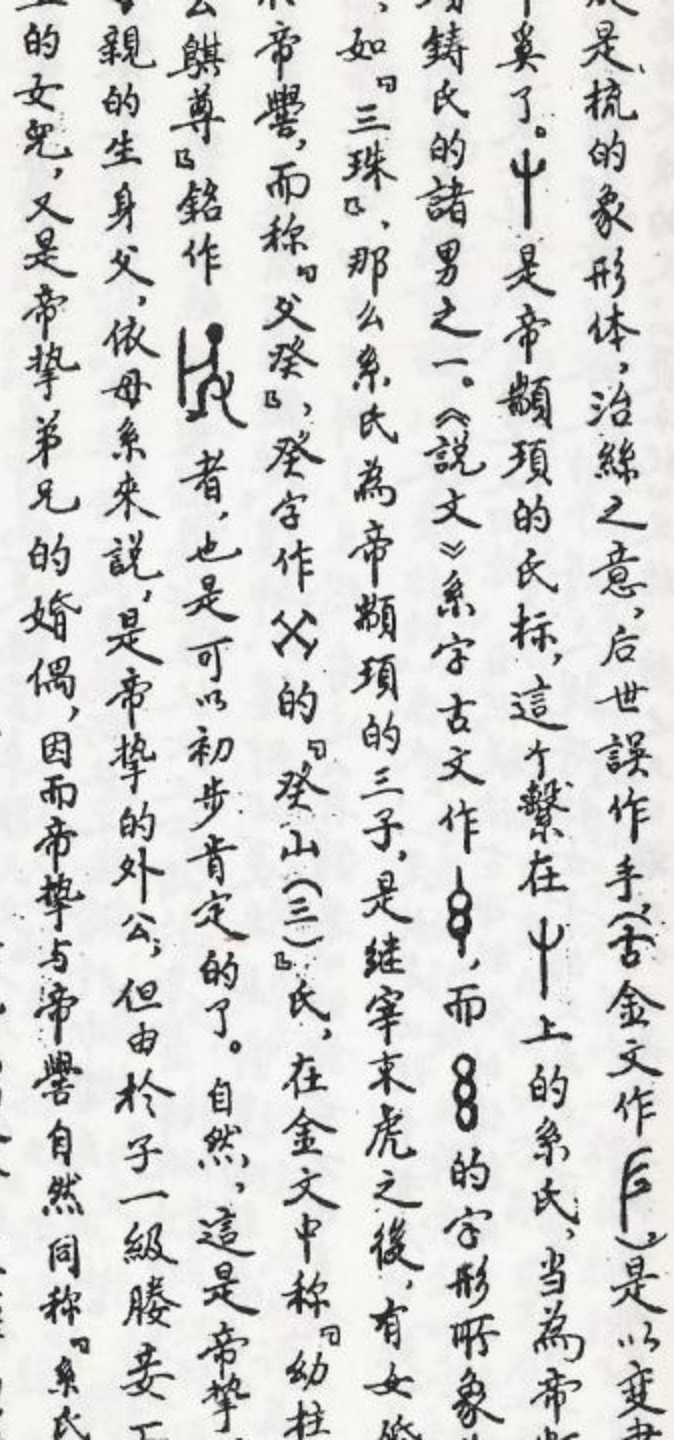 是梳的象形体，治絲之意，后世誤作手，（古金文作），是以变
奚了。是帝顓頊的氏标，這个繫在上的系氏，当為帝
鋳氏的諸男之一。《説文》系字古文作，而的字形所象
、如『三珠』、那么系氏為帝顓頊的三子，是继宰束虎之後，有女
帝嚳，而称『父癸』，癸字作的『癸山（三）』氏，在金文中称『幼
騏尊』銘作者，也是可以初步肯定的了。自然，這是帝摯
親的生身父，依母系来説，是帝摯的外公，但由於子一級媵妾
的女兒，又是帝摯弟兄的婚偶，因而帝摯与帝嚳自然同称『系氏